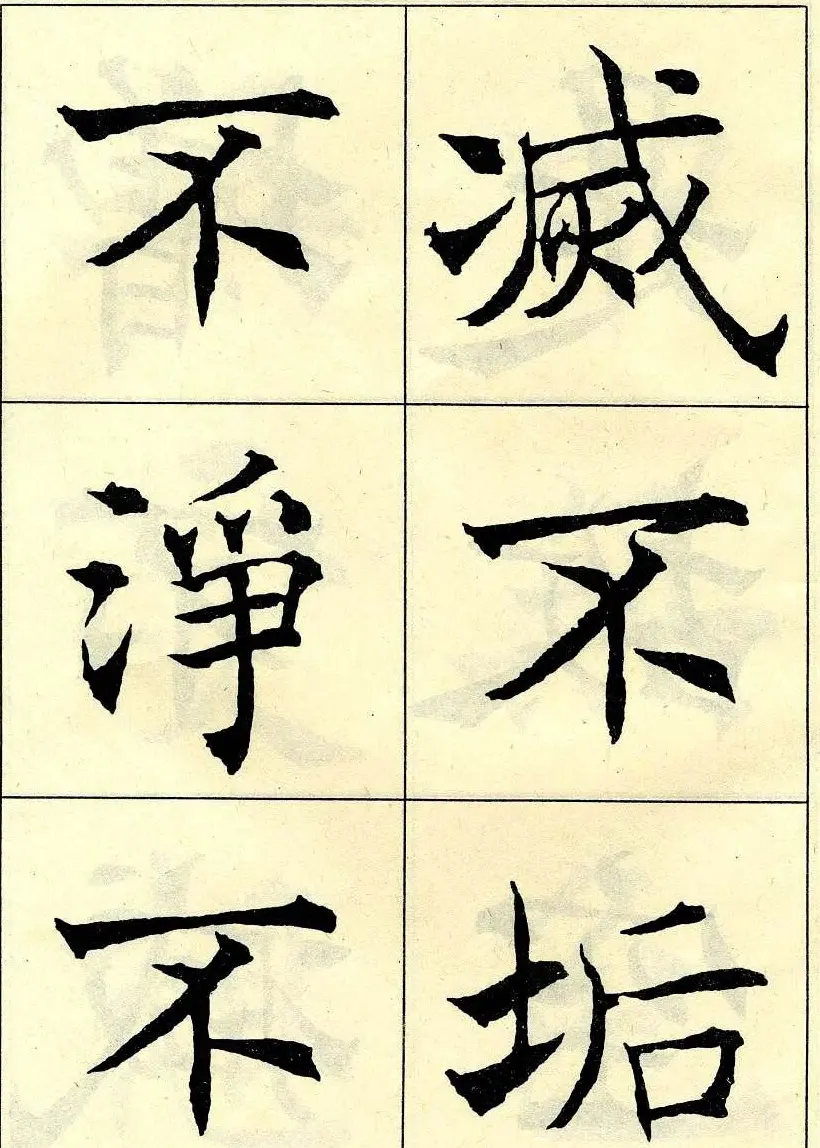 滅不垢
不淨不